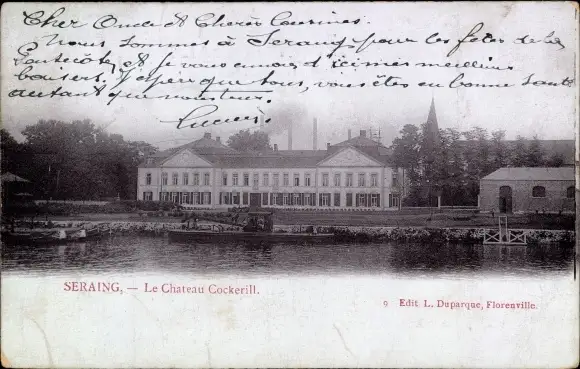 Cher Oncle et Chères Cousines.
Nous sommes à Seraing pour les fêtes de la
Pentecôte, et je vous envois d'ici mes meilleurs
baisers. J'espère que tous, vous êtes en bonne santé
autant que nous tous.
Lucien.
SERAING, — Le Chateau Cockerill.
9 Edit L. Duparque, Florenville.